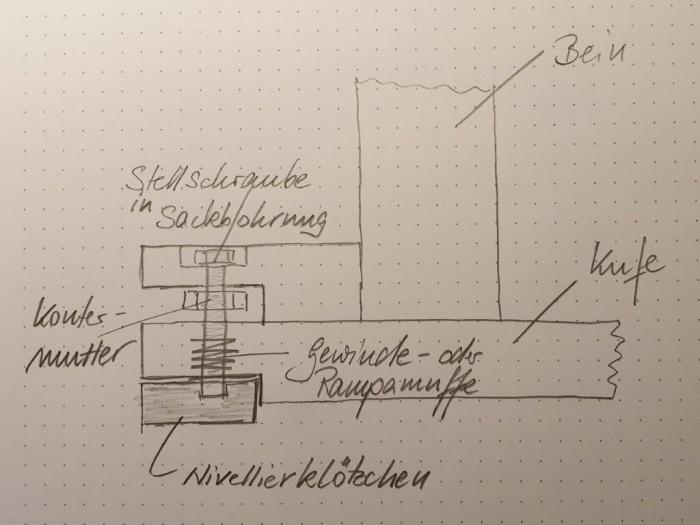 Bein
Stellschraube
in Sackbohrung
Kufe
Konter-
mutter
Gewinde- oder
Rampamuffe
Nivellierklötzchen